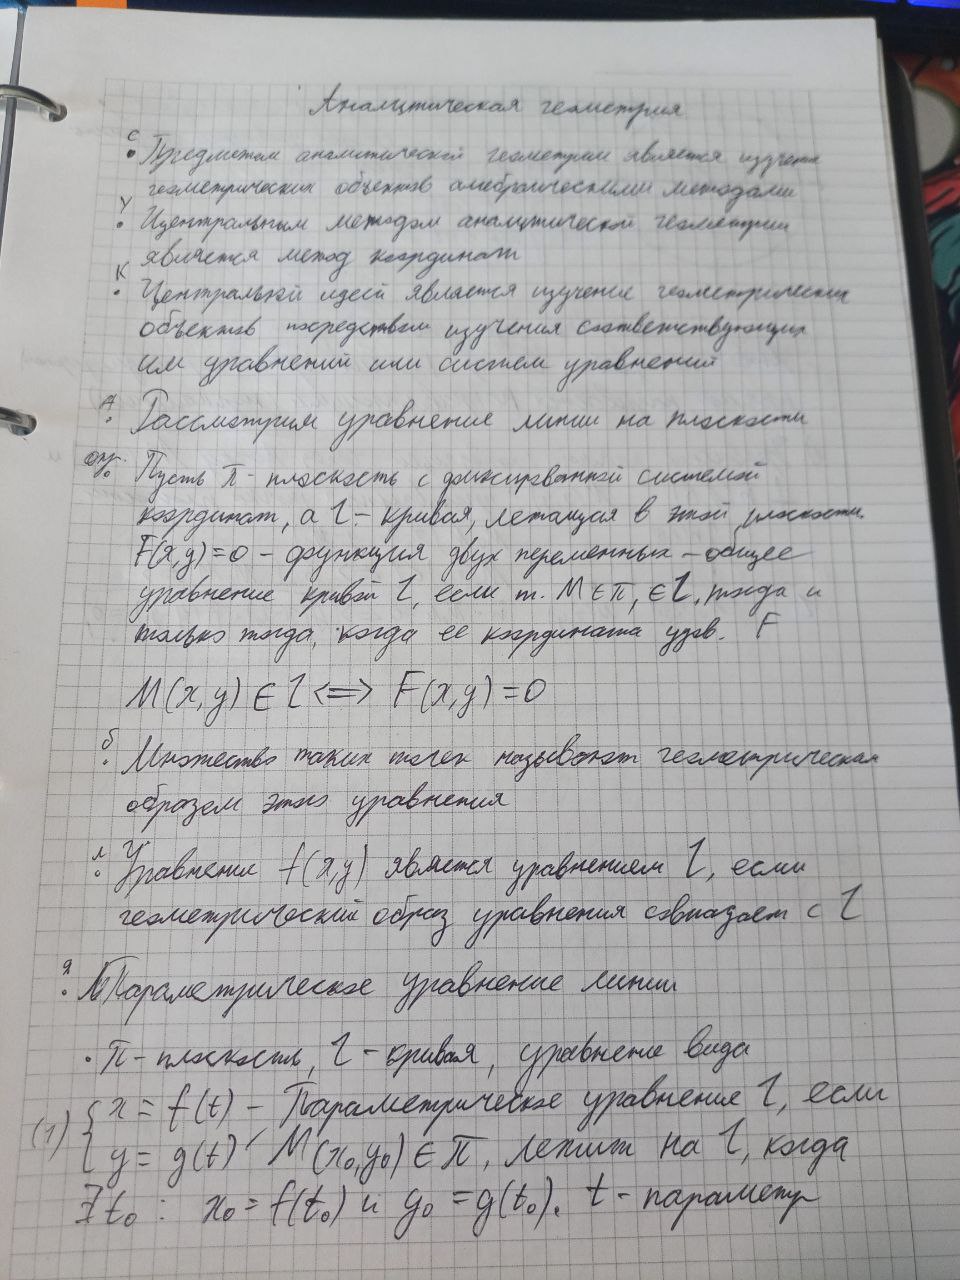 Аналитическая геометрия
с
• Предметом аналитической геометрии является изучение
геометрических объектов алгебраическими методами
у
• Центральным методом аналитической геометрии
является метод координат
к
• Центральной идеей является изучение геометрических
объектов посредством изучения соответствующих
им уравнений или систем уравнений
А
• Рассмотрим уравнение линии на плоскости
опр. Пусть π - плоскость с фиксированной системой
координат, а l - кривая, лежащая в этой плоскости.
F(x,y)=0 - функция двух переменных - общее
уравнение кривой l, если т. M∈π, ∈l, тогда и
только тогда, когда ее координата удов. F
M(x,y)∈l <=> F(x,y)=0
б
• Множество таких точек называют геометрическим
образом этого уравнения
л
• Уравнение f(x,y) является уравнением l, если
геометрический образ уравнения совпадает с l
я
• Параметрическое уравнение линии
• π - плоскость, l - кривая, уравнение вида
(1) { x = f(t) - Параметрическое уравнение l, если
{ y = g(t) M(x₀,y₀)∈π, лежит на l, когда
∃t₀ : x₀=f(t₀) и y₀=g(t₀). t - параметр